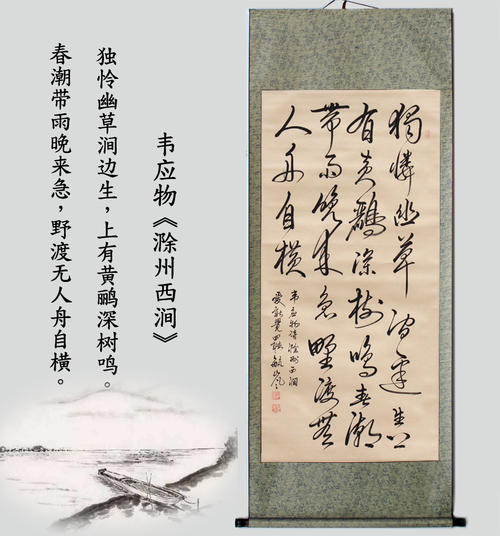 獨憐幽草澗邊生上
有黄鸝深樹鳴春潮
帶雨晚来急野渡無
人舟自橫
韦应物诗滁州西涧
韦应物《滁州西涧》
独怜幽草涧边生，上有黄鹂深树鸣。
春潮带雨晚来急，野渡无人舟自横。